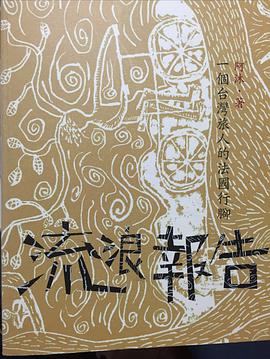 阿沐・著
一個台灣旅人的法國行腳
流浪報告